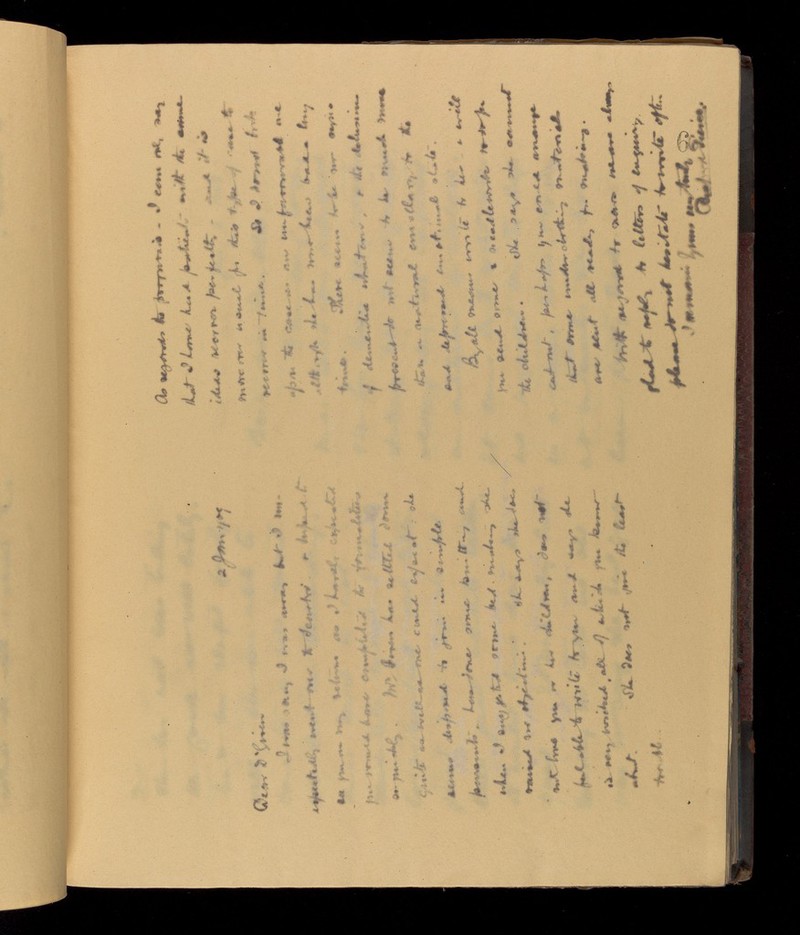 2 Jan 1909
Dear Dr Given
I was away but I un-
expectedly went over to & hoped to
see you on my return as I hardly expected
you would have completed the formalities
so quickly. Mrs Given has settled down
quite as well as one could expect; she
seems disposed to join in simple
pursuits, has done some knitting and
when I suggested some bed-making she
raised no objection. She says she does
not love you or her children, does not
feel able to write to you and says she
is very wicked, all of which you know
about. She does not give the least
trouble.
As regards the prognosis - I can only say
that I have had patients with the same
ideas recover perfectly - and it is
more or usual for this type of case to
recover in time. So I do not look
upon the case as an unfavourable one
although she has now been a long
time. There seem to be no signs
of dementia whatever, & the delusions
present do not seem to be much more
than a natural corollary to the
and depressed emotional state.
By all means write to her & will
you send some needlework to do for
the children. She says she cannot
cut out, perhaps you could arrange
that some underclothing material
are sent all ready for making.
With regard to news we are always
glad to reply to letters of enquiry,
please do not hesitate to write often.
I remain yours very truly